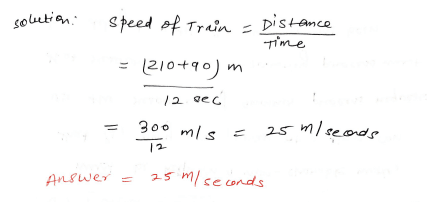 solution: Speed of Train = Distance / Time
= (210+90) m / 12 sec
= 300 / 12 m/s = 25 m/seconds
Answer = 25 m/seconds